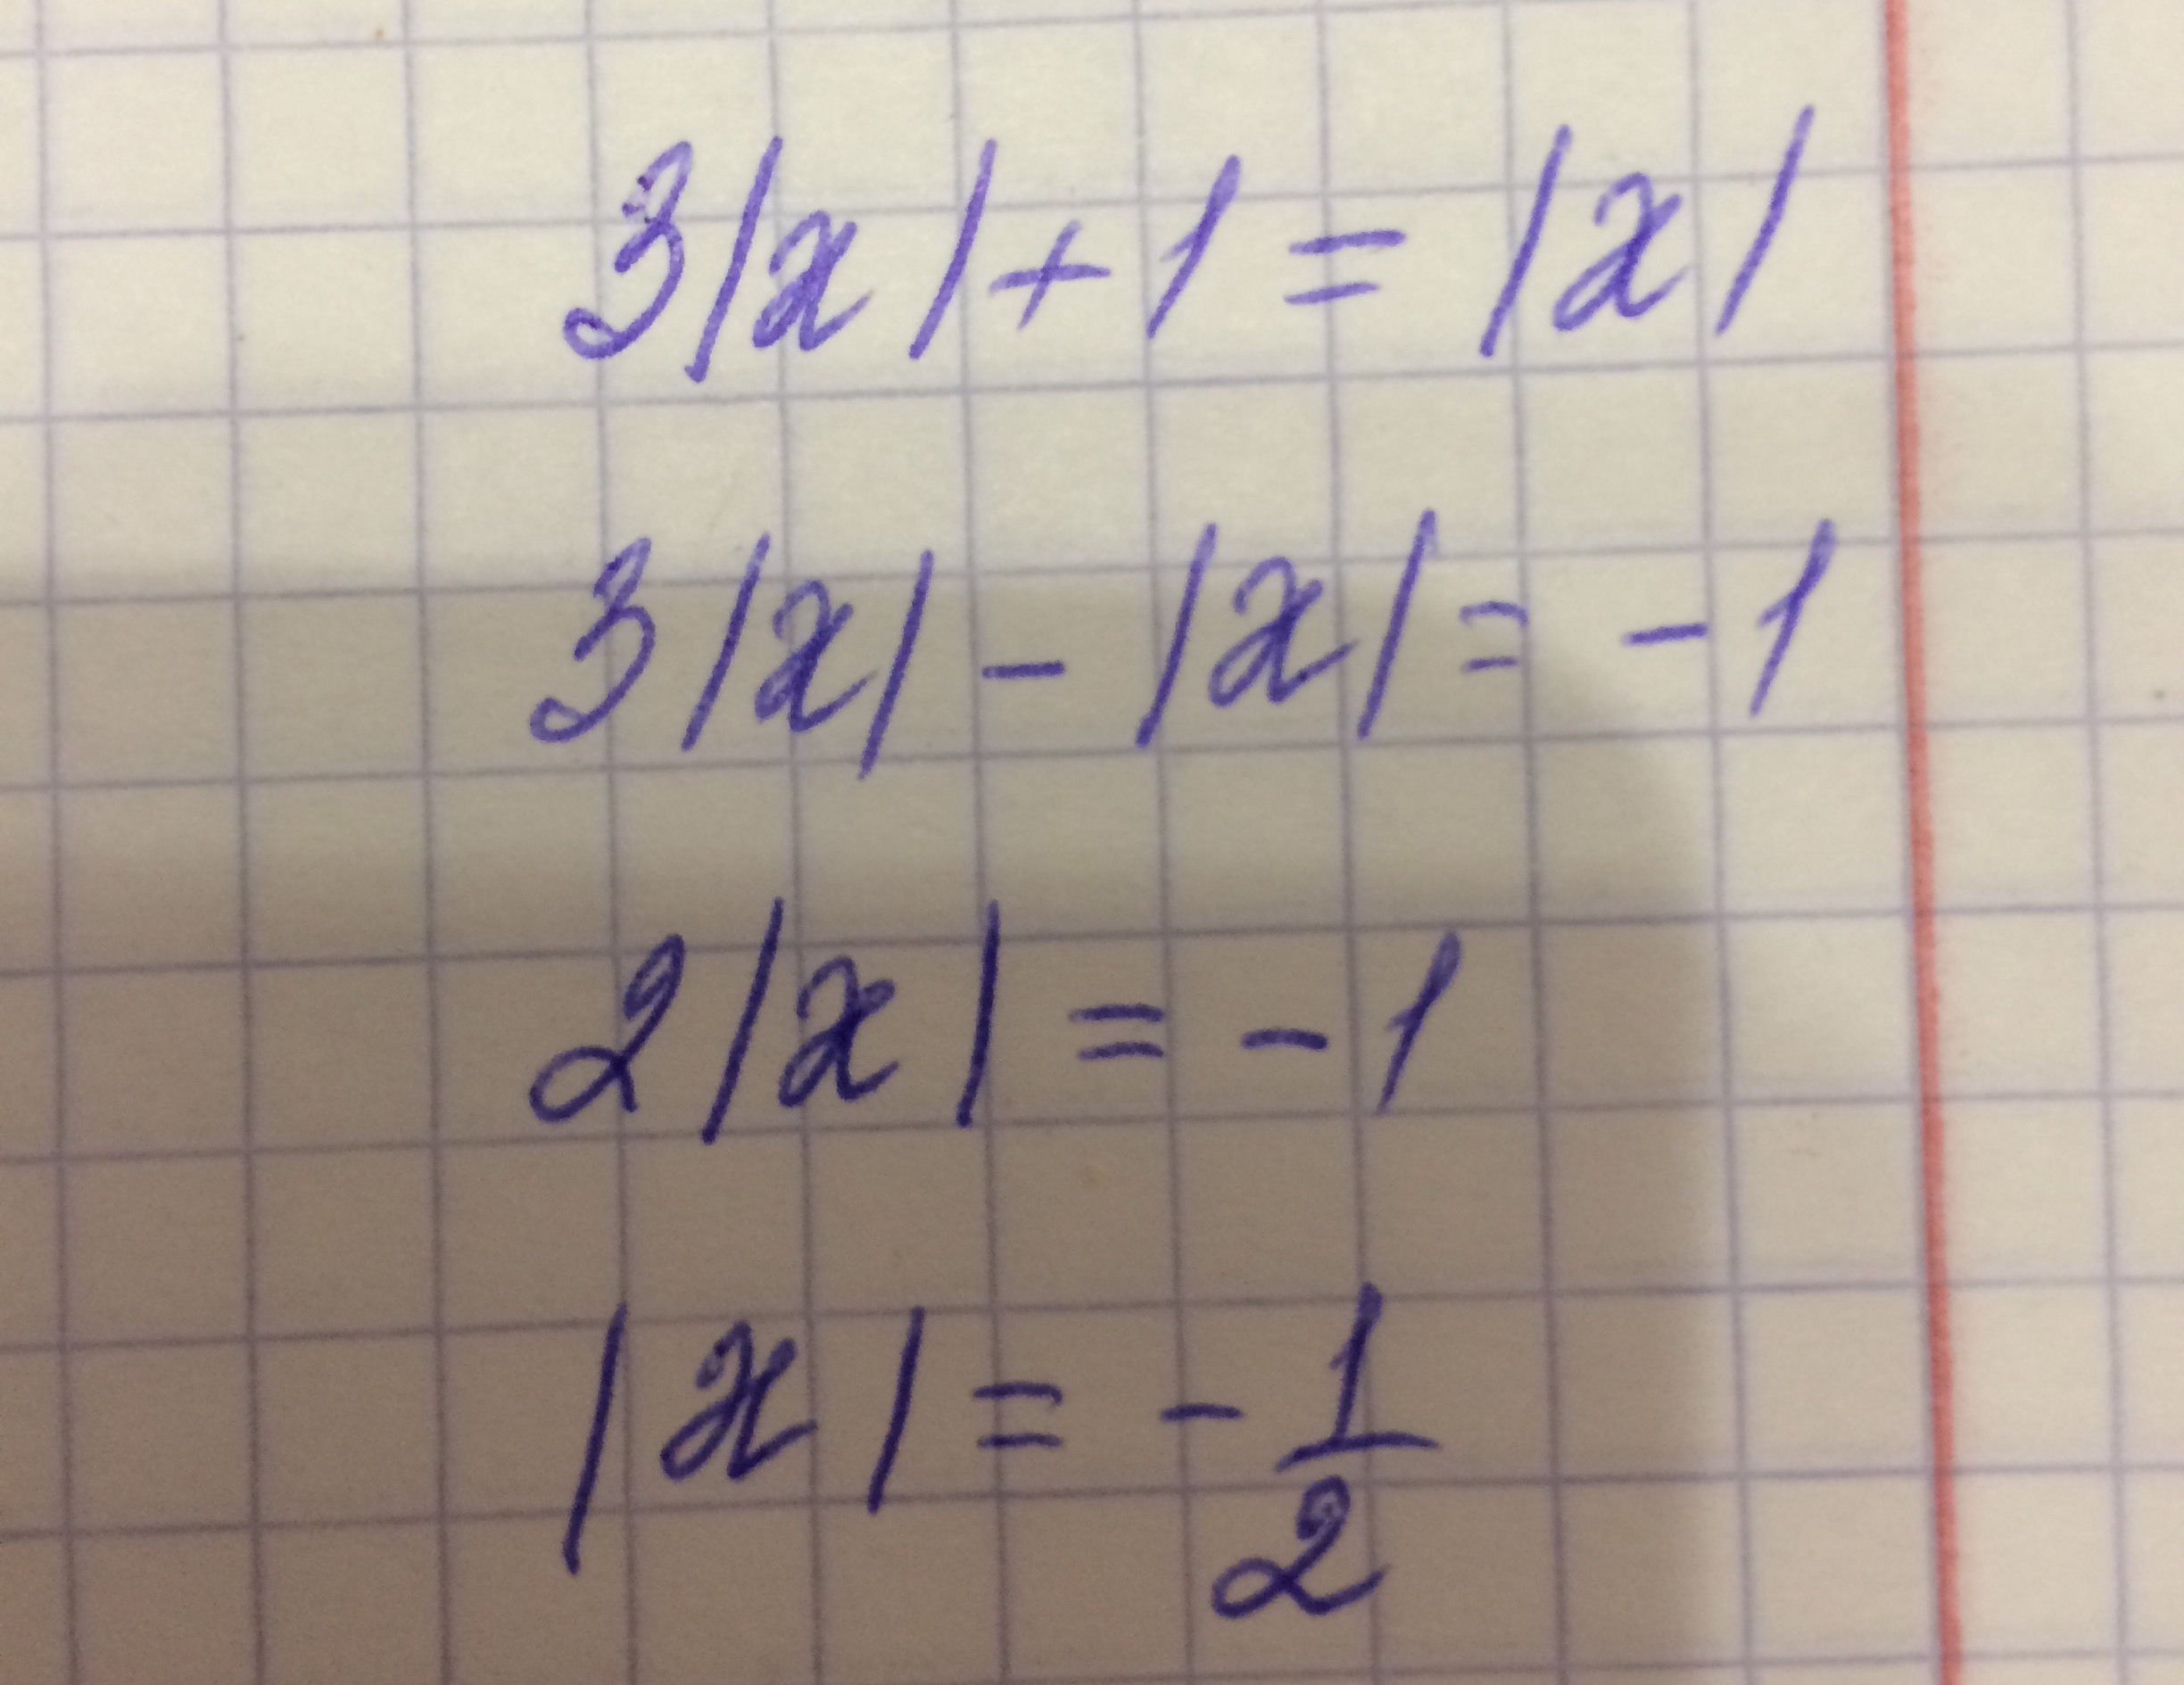 3|x|+1=|x|
3|x|-|x|=-1
2|x|=-1
|x|=-1/2